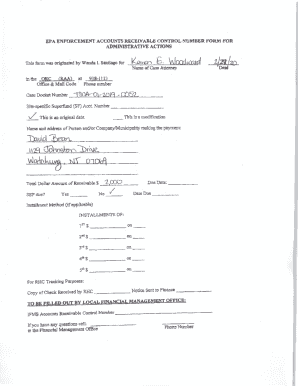 EPA ENFORCEMENT ACCOUNTS RECEIVABLE CONTROL NUMBER FORM FOR
ADMINISTRATIVE ACTIONS
This form was originated by Wanda I. Santiago for Karen E. Woodward
Name of Case Attorney Date
in the ORC (RAA) at 918-1113
Office & Mail Code Phone number
Case Docket Number
Site-specific Superfund (SF) Acct. Number
✓ This is an original debt This is a modification
Name and address of Person and/or Company/Municipality making the payment:
David Bean
1129 Johnston Drive
Watchung, NJ 07069
Total Dollar Amount of Receivable $ 2,000 Due Date:
SEP due? Yes No ✓ Date Due
Installment Method (if applicable)
INSTALLMENTS OF:
1st $ on
2nd $ on
3rd $ on
4th $ on
5th $ on
For RHC Tracking Purposes:
Copy of Check Received by RHC Notice Sent to Finance
TO BE FILLED OUT BY LOCAL FINANCIAL MANAGEMENT OFFICE:
IFMS Accounts Receivable Control Number
If you have any questions call:
in the Financial Management Office Phone Number